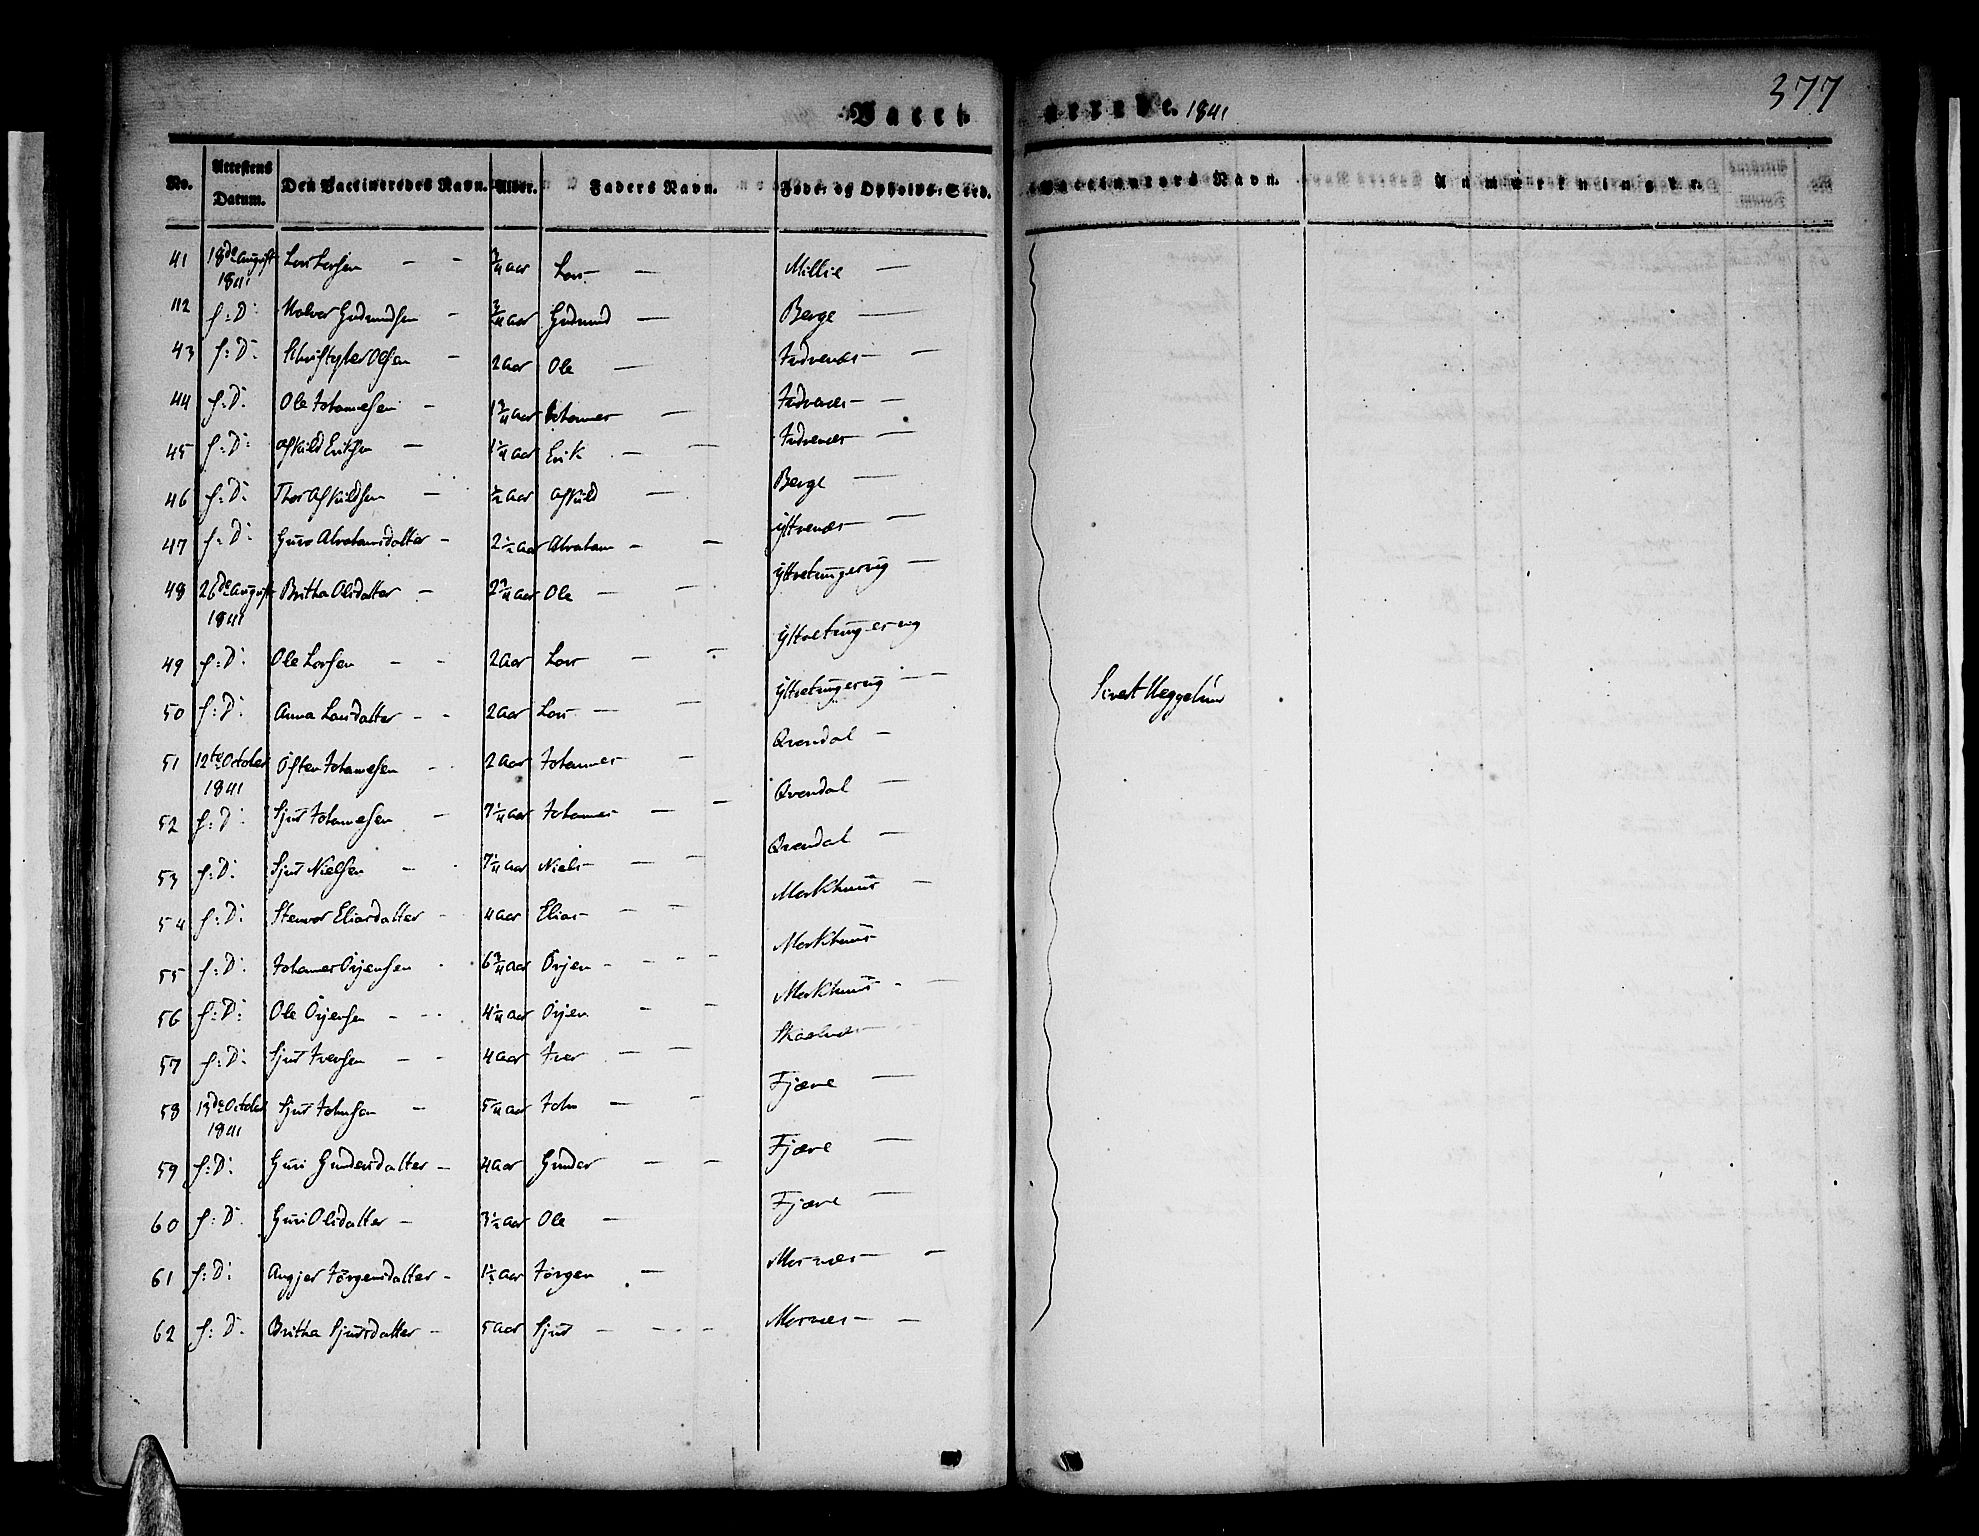 377
Vacci nerede. 1841
No. Attestens Datum. Den Vaccineredes Navn. Alder. Faders Navn. Føde- og Opholds-Sted. Vaccinators Navn. Anmærkninger.
41 18de August 1841 Lars Larsen — — 3/4 aar Lars — Millie —
42 s: D: Halvor Gudmundsen — 3/4 aar Gudmund — Berge —
43 s: D: Christopher Olsen — 2 aar Ole — Indrenæs — —
44 s: D: Ole Johannesen — 1 3/4 aar Johannes — Indrenæs — —
45 s: D: Askild Eriksen — 1 1/4 aar Erik — — Indrenæs — —
46 s: D: Thor Askildsen — 1/2 aar Askild — Berge —
47 s: D: Guro Abrahamsdatter — 2 1/2 aar Abraham — — Yttrenæs — —
48 26de August 1841 Britha Olsdatter — 2 3/4 aar Ole — — Yttretungesvig —
49 s: D: Ole Larsen — — 2 aar Lars — — Yttretungesvig
50 s: D: Anna Larsdatter — — 2 aar Lars — — Yttretungesvig — —
Sivert Heggelun
51 12te October 1841 Østen Johannesen — 2 aar Johannes — Qvendal —
52 s: D: Sjur Johannesen — 7 1/4 aar Johannes — — Qvendal —
53 s: D: Sjur Nielsen — 7 1/4 aar Niels — — Qvendal —
54 s: D: Stenvor Eliasdatter — 4 aar Elias — — Markhuus —
55 s: D: Johannes Ørjensen 6 3/4 aar Ørjen — — — — Markhuus
56 s: D: Ole Ørjensen — — 4 1/4 aar Ørjen — — Markhuus — —
57 s: D: Sjur Iversen — — 4 aar Iver — —
58 13de October 1841 Sjur Johnsen — 5 1/4 aar John — — Fjære —
59 s: D: Guri Gundersdatter — 4 aar Gunder — — Fjære —
60 s: D: Guri Olsdatter — 3 1/2 aar Ole — Fjære —
61 s: D: Angjer Jørgensdatter — 1 1/2 aar Jørgen — Mosnæs — —
62 s: D: Britha Sjursdatter — 5 aar Sjur — — — — Mosnæs — —